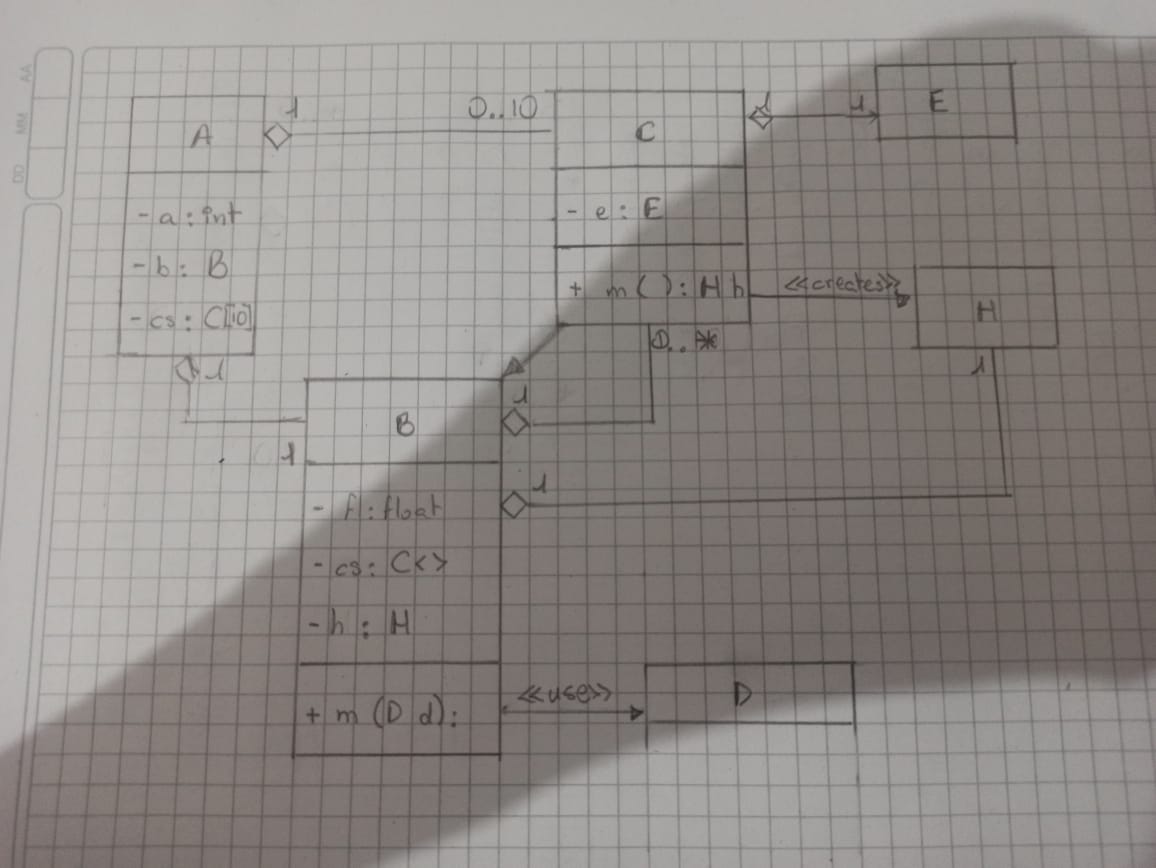 AA
MM
DD
A
- a : int
- b : B
- cs : C[10]
1
0..10
C
- e : E
+ m ( ) : H h
1
1
E
<<creates>>
H
1
0..*
1
1
B
- f : float
- cs : C< >
- h : H
+ m (D d) :
1
1
<<use>>
D